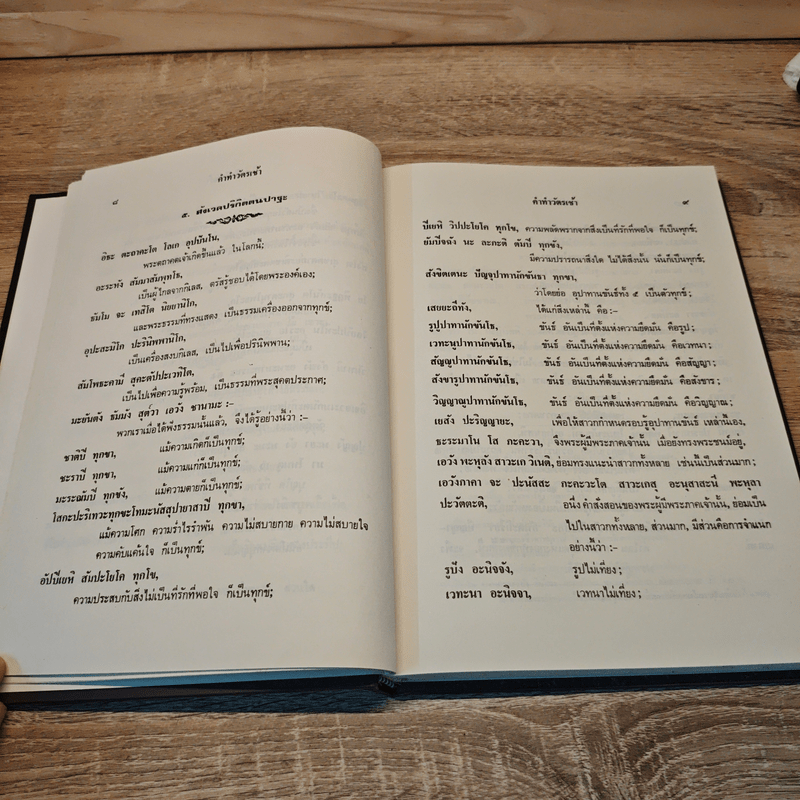 ๘
คำทำวัตรเช้า
๕. สังเวคปริกิตตนปาฐะ
อิธะ ตะถาคะโต โลเก อุปปันโน,
พระตถาคตเจ้าเกิดขึ้นแล้ว ในโลกนี้;
อะระหัง สัมมาสัมพุทโธ,
เป็นผู้ไกลจากกิเลส, ตรัสรู้ชอบได้โดยพระองค์เอง;
ธัมโม จะ เทสิโต นิยยานิโก,
และพระธรรมที่ทรงแสดง เป็นธรรมเครื่องออกจากทุกข์;
อุปะสะมิโก ปะรินิพพานิโก,
เป็นเครื่องสงบกิเลส, เป็นไปเพื่อปรินิพพาน;
สัมโพธะคามี สุคะตัปปะเวทิโต,
เป็นไปเพื่อความรู้พร้อม, เป็นธรรมที่พระสุคตประกาศ;
มะยันตัง ธัมมัง สุต๎วา เอวัง ชานามะ :–
พวกเราเมื่อได้ฟังธรรมนั้นแล้ว, จึงได้รู้อย่างนี้ว่า :–
ชาติปิ ทุกขา, แม้ความเกิดก็เป็นทุกข์;
ชะราปิ ทุกขา, แม้ความแก่ก็เป็นทุกข์;
มะระณัมปิ ทุกขัง, แม้ความตายก็เป็นทุกข์;
โสกะปะริเทวะทุกขะโทมะนัสสุปายาสาปิ ทุกขา,
แม้ความโศก ความร่ำไรรำพัน ความไม่สบายกาย ความไม่สบายใจ
ความคับแค้นใจ ก็เป็นทุกข์;
อัปปิเยหิ สัมปะโยโค ทุกโข,
ความประสบกับสิ่งไม่เป็นที่รักที่พอใจ ก็เป็นทุกข์;
คำทำวัตรเช้า
๙
ปิเยหิ วิปปะโยโค ทุกโข, ความพลัดพรากจากสิ่งเป็นที่รักที่พอใจ ก็เป็นทุกข์;
ยัมปิจฉัง นะ ละภะติ ตัมปิ ทุกขัง,
มีความปรารถนาสิ่งใด ไม่ได้สิ่งนั้น นั่นก็เป็นทุกข์;
สังขิตเตนะ ปัญจุปาทานักขันธา ทุกขา,
ว่าโดยย่อ อุปาทานขันธ์ทั้ง ๕ เป็นตัวทุกข์;
เสยยะถีทัง, ได้แก่สิ่งเหล่านี้ คือ :–
รูปูปาทานักขันโธ, ขันธ์ อันเป็นที่ตั้งแห่งความยึดมั่น คือรูป;
เวทะนูปาทานักขันโธ, ขันธ์ อันเป็นที่ตั้งแห่งความยึดมั่น คือเวทนา;
สัญญูปาทานักขันโธ, ขันธ์ อันเป็นที่ตั้งแห่งความยึดมั่น คือสัญญา;
สังขารูปาทานักขันโธ, ขันธ์ อันเป็นที่ตั้งแห่งความยึดมั่น คือสังขาร;
วิญญาณูปาทานักขันโธ, ขันธ์ อันเป็นที่ตั้งแห่งความยึดมั่น คือวิญญาณ;
เยสัง ปะริญญายะ, เพื่อให้สาวกกำหนดรอบรู้อุปาทานขันธ์ เหล่านี้เอง,
ธะระมาโน โส ภะคะวา, จึงพระผู้มีพระภาคเจ้านั้น เมื่อยังทรงพระชนม์อยู่,
เอวัง พะหุลัง สาวะเก วิเนติ, ย่อมทรงแนะนำสาวกทั้งหลาย เช่นนี้เป็นส่วนมาก;
เอวังภาคา จะ ปะนัสสะ ภะคะวะโต สาวะเกสุ อะนุสาสะนี พะหุลา
ปะวัตตะติ, อนึ่ง คำสั่งสอนของพระผู้มีพระภาคเจ้านั้น, ย่อมเป็น
ไปในสาวกทั้งหลาย, ส่วนมาก, มีส่วนคือการจำแนก
อย่างนี้ว่า :–
รูปัง อะนิจจัง, รูปไม่เที่ยง;
เวทะนา อะนิจจา, เวทนาไม่เที่ยง;